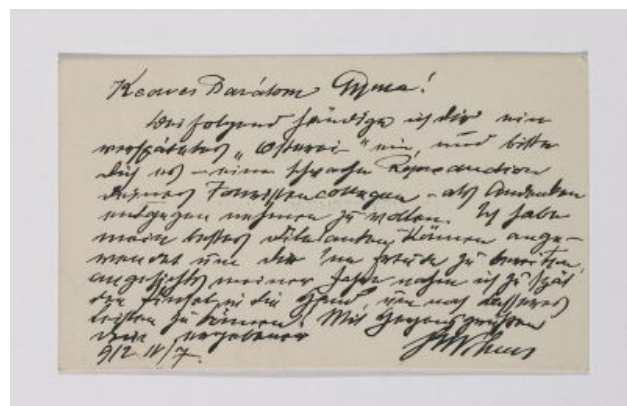 Kedves Barátom Gyma!
Beifolgend händige ich dir ein
verspätetes „Osterei" ein, und bitte
dich es – eine schwache Reproduction
deines Touristencollegen – als Andenken
entgegen nehmen zu wollen. Ich habe
mein bestes dilettanten Können ange-
wendet um dir 'ne Freude zu bereiten,
angesichts meiner Jahre nahm ich zu spät
den Pinsel in die Hand um noch besseres
leisten zu können. Mit Herzensgrüssen
dein ergebener
912 IV/7.